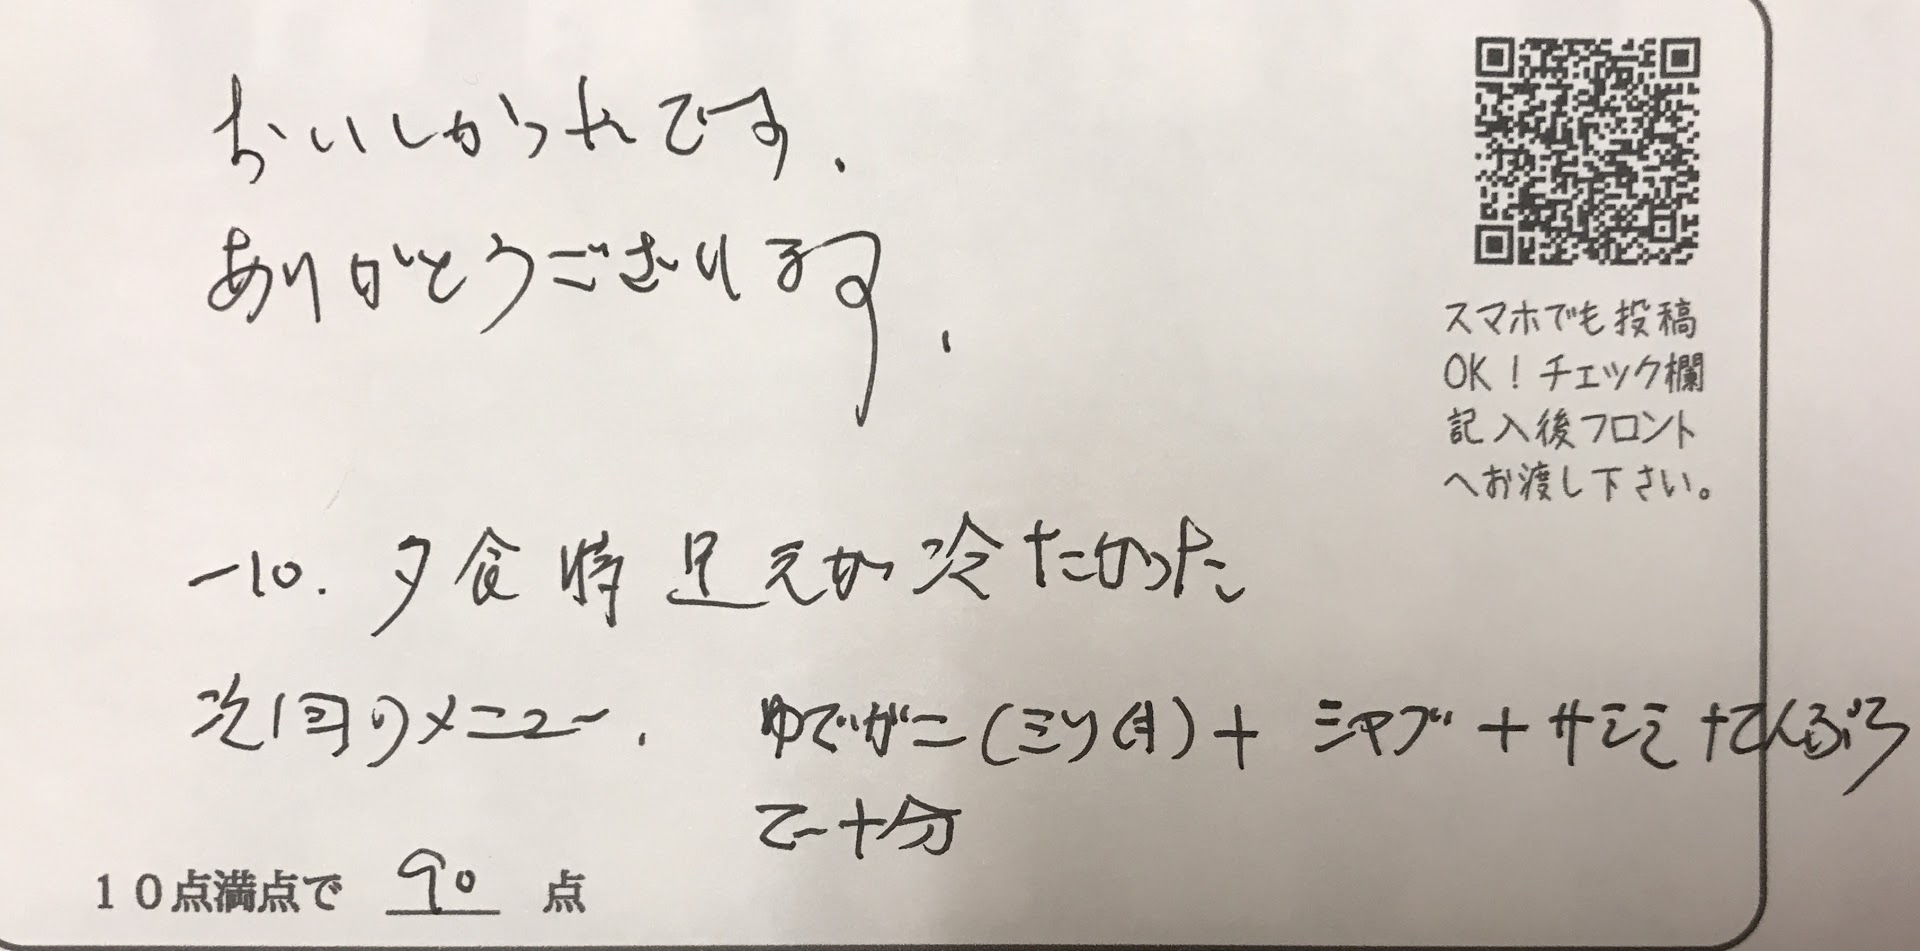 おいしかったです.
ありがとうございます.
スマホでも投稿
OK!チェック欄
記入後フロント
へお渡し下さい。
-10. 夕食時足元が冷たかった
次回のメニュー. ゆでガニ(ミソ付)+シャブ+サシミ+てんぷら
で十分
10点満点で 90 点